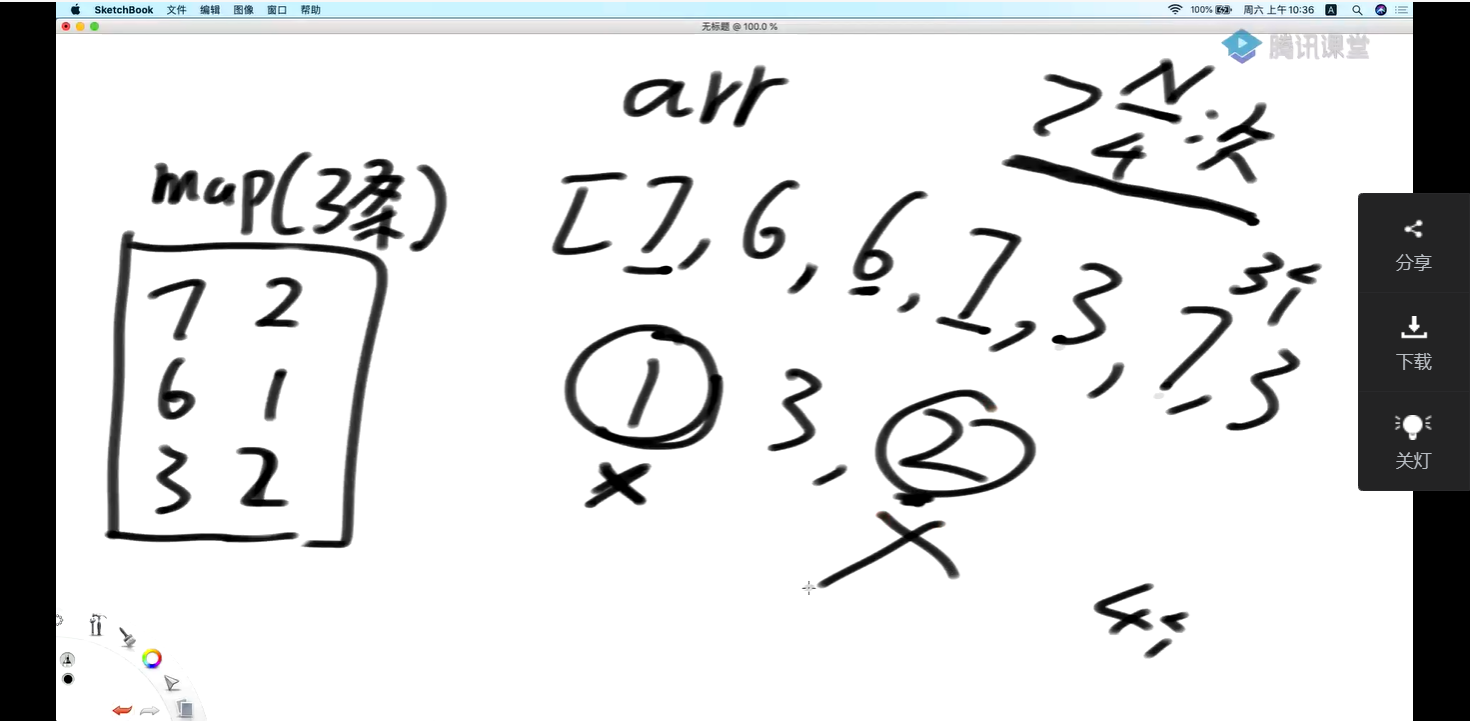 SketchBook 文件 编辑 图像 窗口 帮助 100% 周六 上午10:36 A
无标题 @ 100.0 %
腾讯课堂
arr
> N/4 次
map(3条)
[7, 6, 6, 7, 3, 7, 3
7 2
6 1
3 2
1 3, 2
分享
下载
关灯